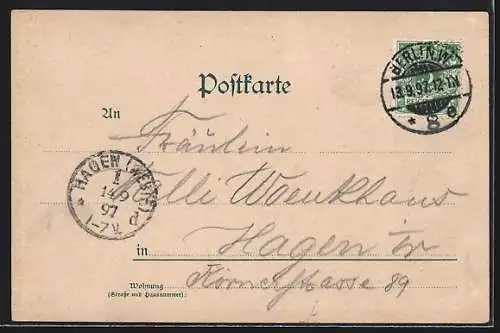 BERLIN W.
13.9.97.12-1N
* 8 e
Postkarte
An
Fräulein
HAGEN (WESTF)
1
14/9
97
1-7V.
* d
Hagen
in
89
Wohnung
(Straße und Hausnummer)